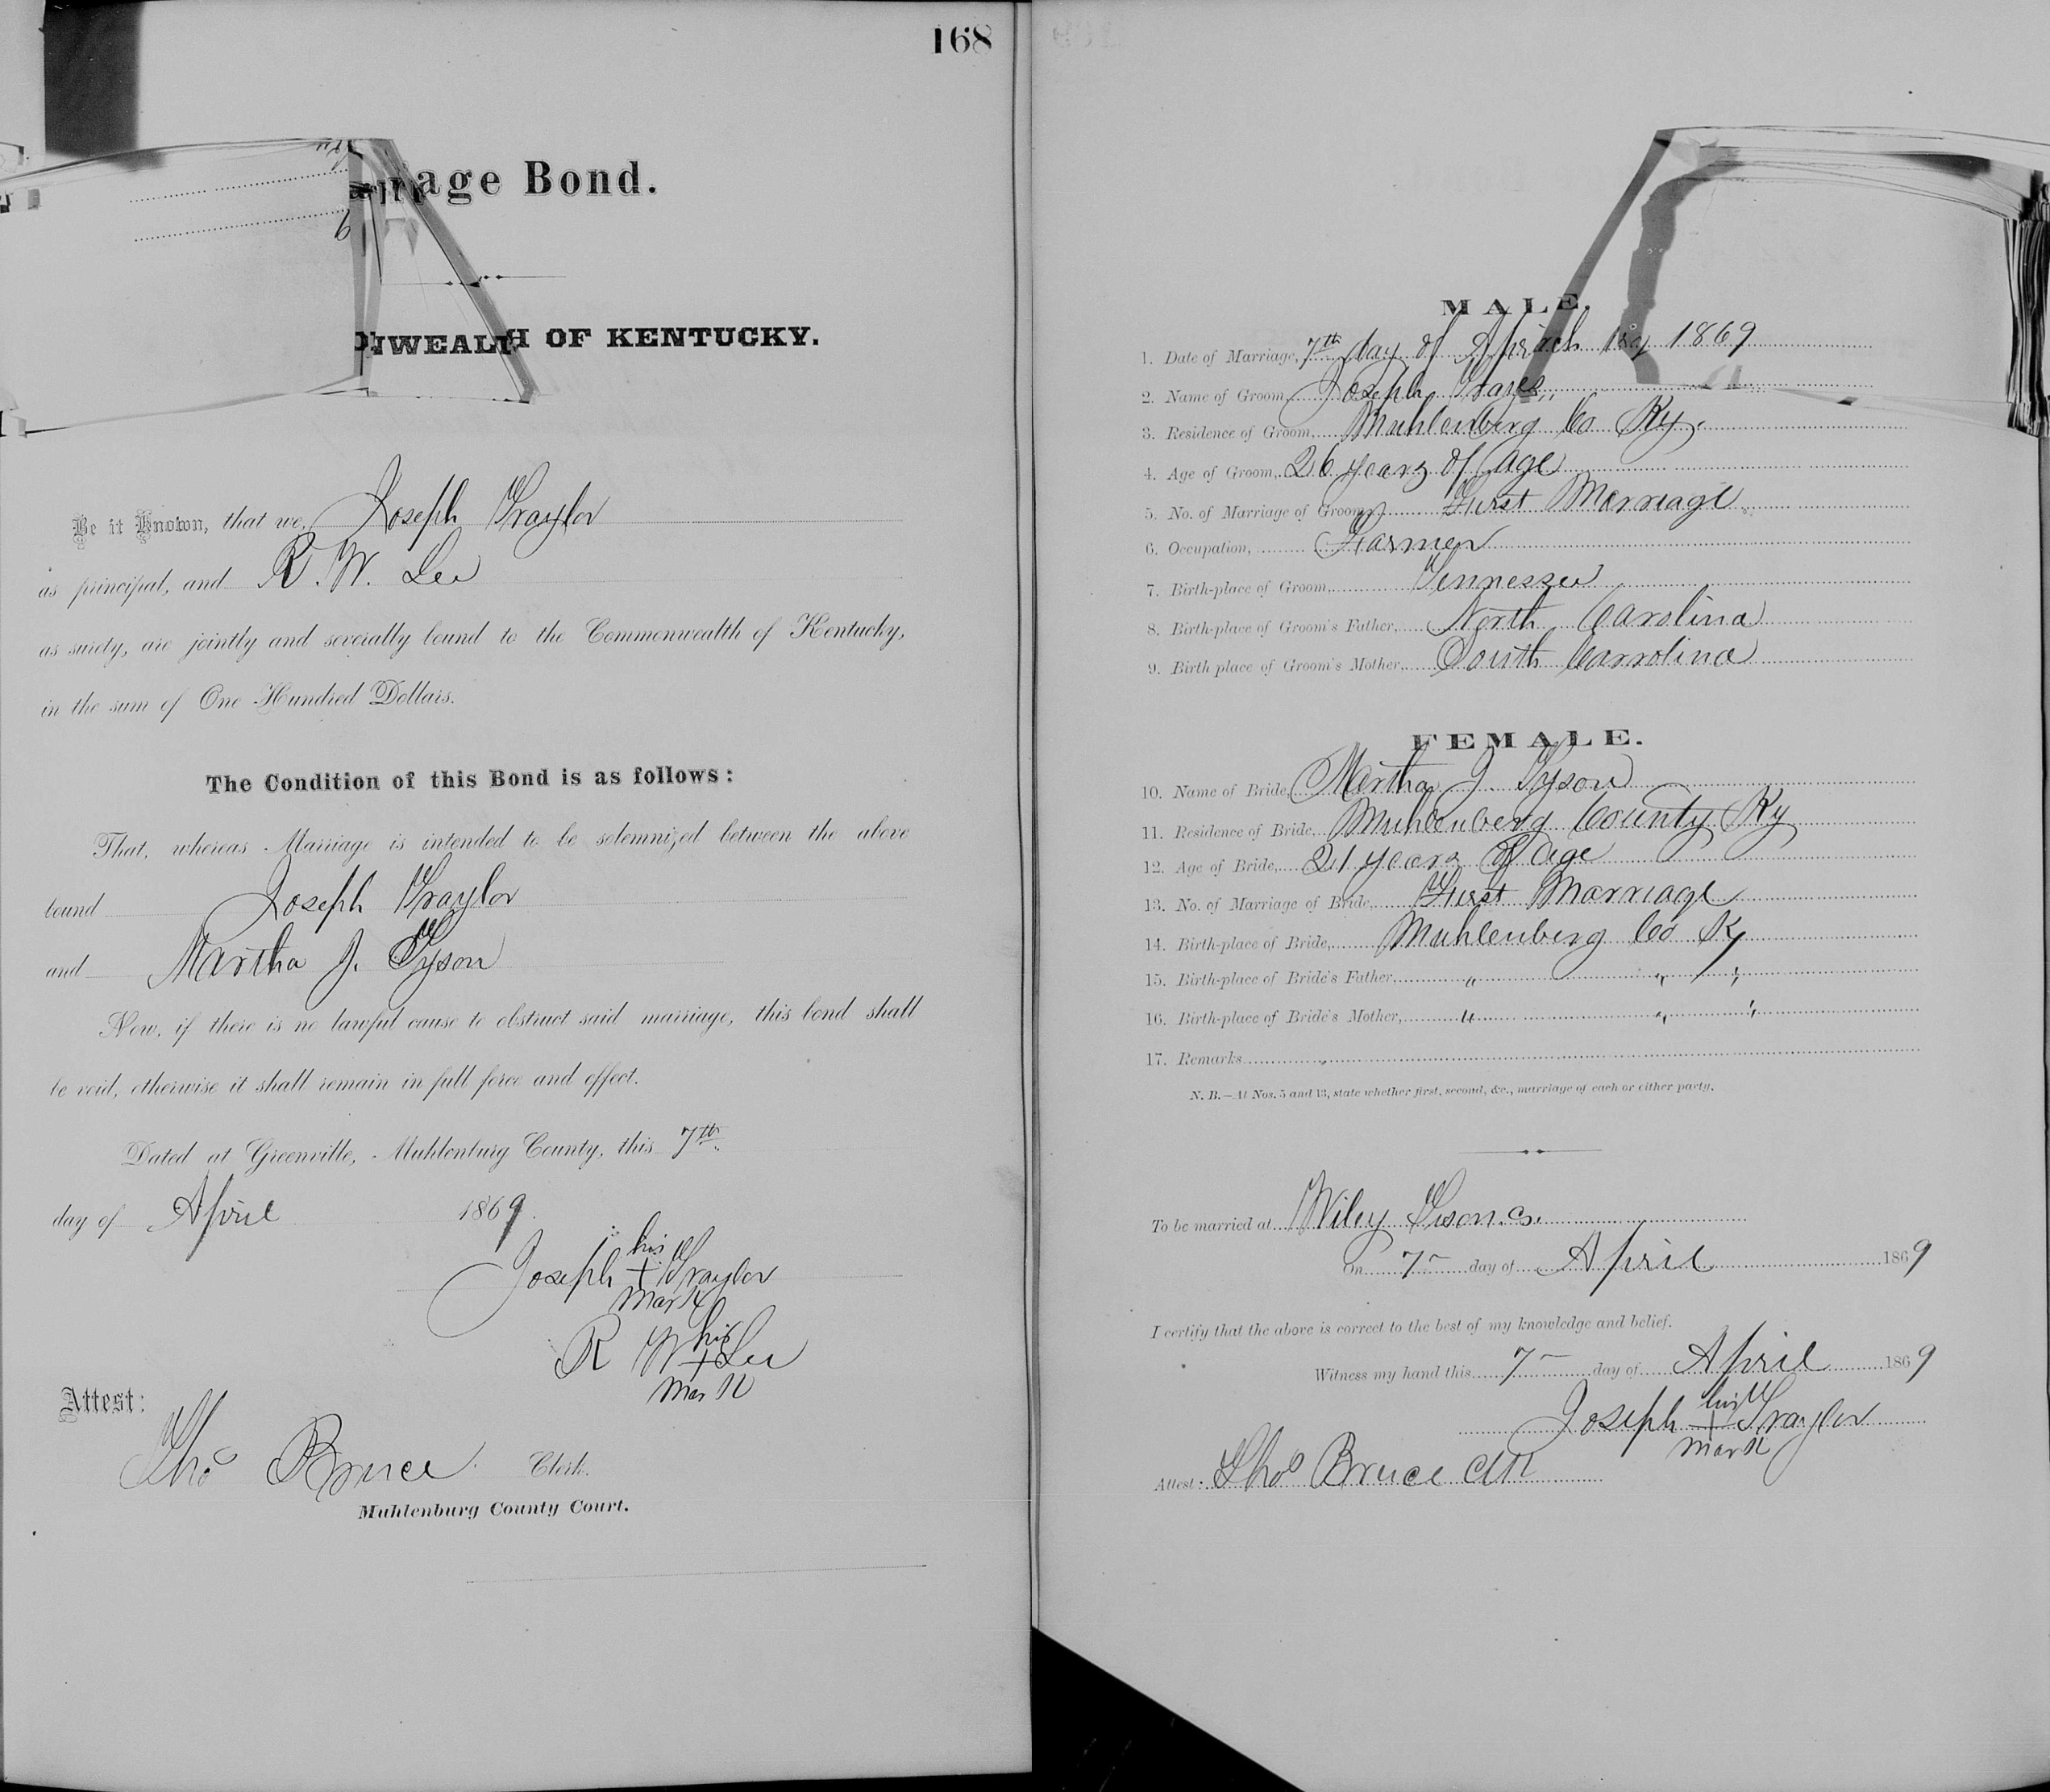 168
riage Bond.
OF KENTUCKY.
Be it Known, that we, Joseph Traylor
as principal, and R. W. Lee
as surety, are jointly and severally bound to the Commonwealth of Kentucky,
in the sum of One Hundred Dollars.
The Condition of this Bond is as follows:
That, whereas Marriage is intended to be solemnized between the above
bound Joseph Traylor
and Martha J. Tyson
Now, if there is no lawful cause to obstruct said marriage, this bond shall
be void, otherwise it shall remain in full force and effect.
Dated at Greenville, Muhlenburg County, this 7th
day of April 1869.
his
Joseph + Traylor
mark
his
R W + Lee
mark
Attest:
Thos Bruce Clerk.
Muhlenburg County Court.
MALE.
1. Date of Marriage, 7th day of 1869
2. Name of Groom, Joseph
3. Residence of Groom, Muhlenberg Co Ky.
4. Age of Groom, 26 years of age
5. No. of Marriage of Groom, First Marriage
6. Occupation, Farmer
7. Birth-place of Groom, Tennessee
8. Birth-place of Groom's Father, North Carolina
9. Birth place of Groom's Mother, South Carrolina
FEMALE.
10. Name of Bride, Martha J. Tyson
11. Residence of Bride, Muhlenberg County Ky
12. Age of Bride, 21 years of age
13. No. of Marriage of Bride, First Marriage
14. Birth-place of Bride, Muhlenberg Co Ky
15. Birth-place of Bride's Father, " " "
16. Birth-place of Bride's Mother, " " "
17. Remarks
N. B.—At Nos. 5 and 13, state whether first, second, &c., marriage of each or either party.
To be married at Wiley
On 7 day of April 1869
I certify that the above is correct to the best of my knowledge and belief.
Witness my hand this 7 day of April 1869
his
Joseph + Traylor
mark
Attest: Thos Bruce Clk